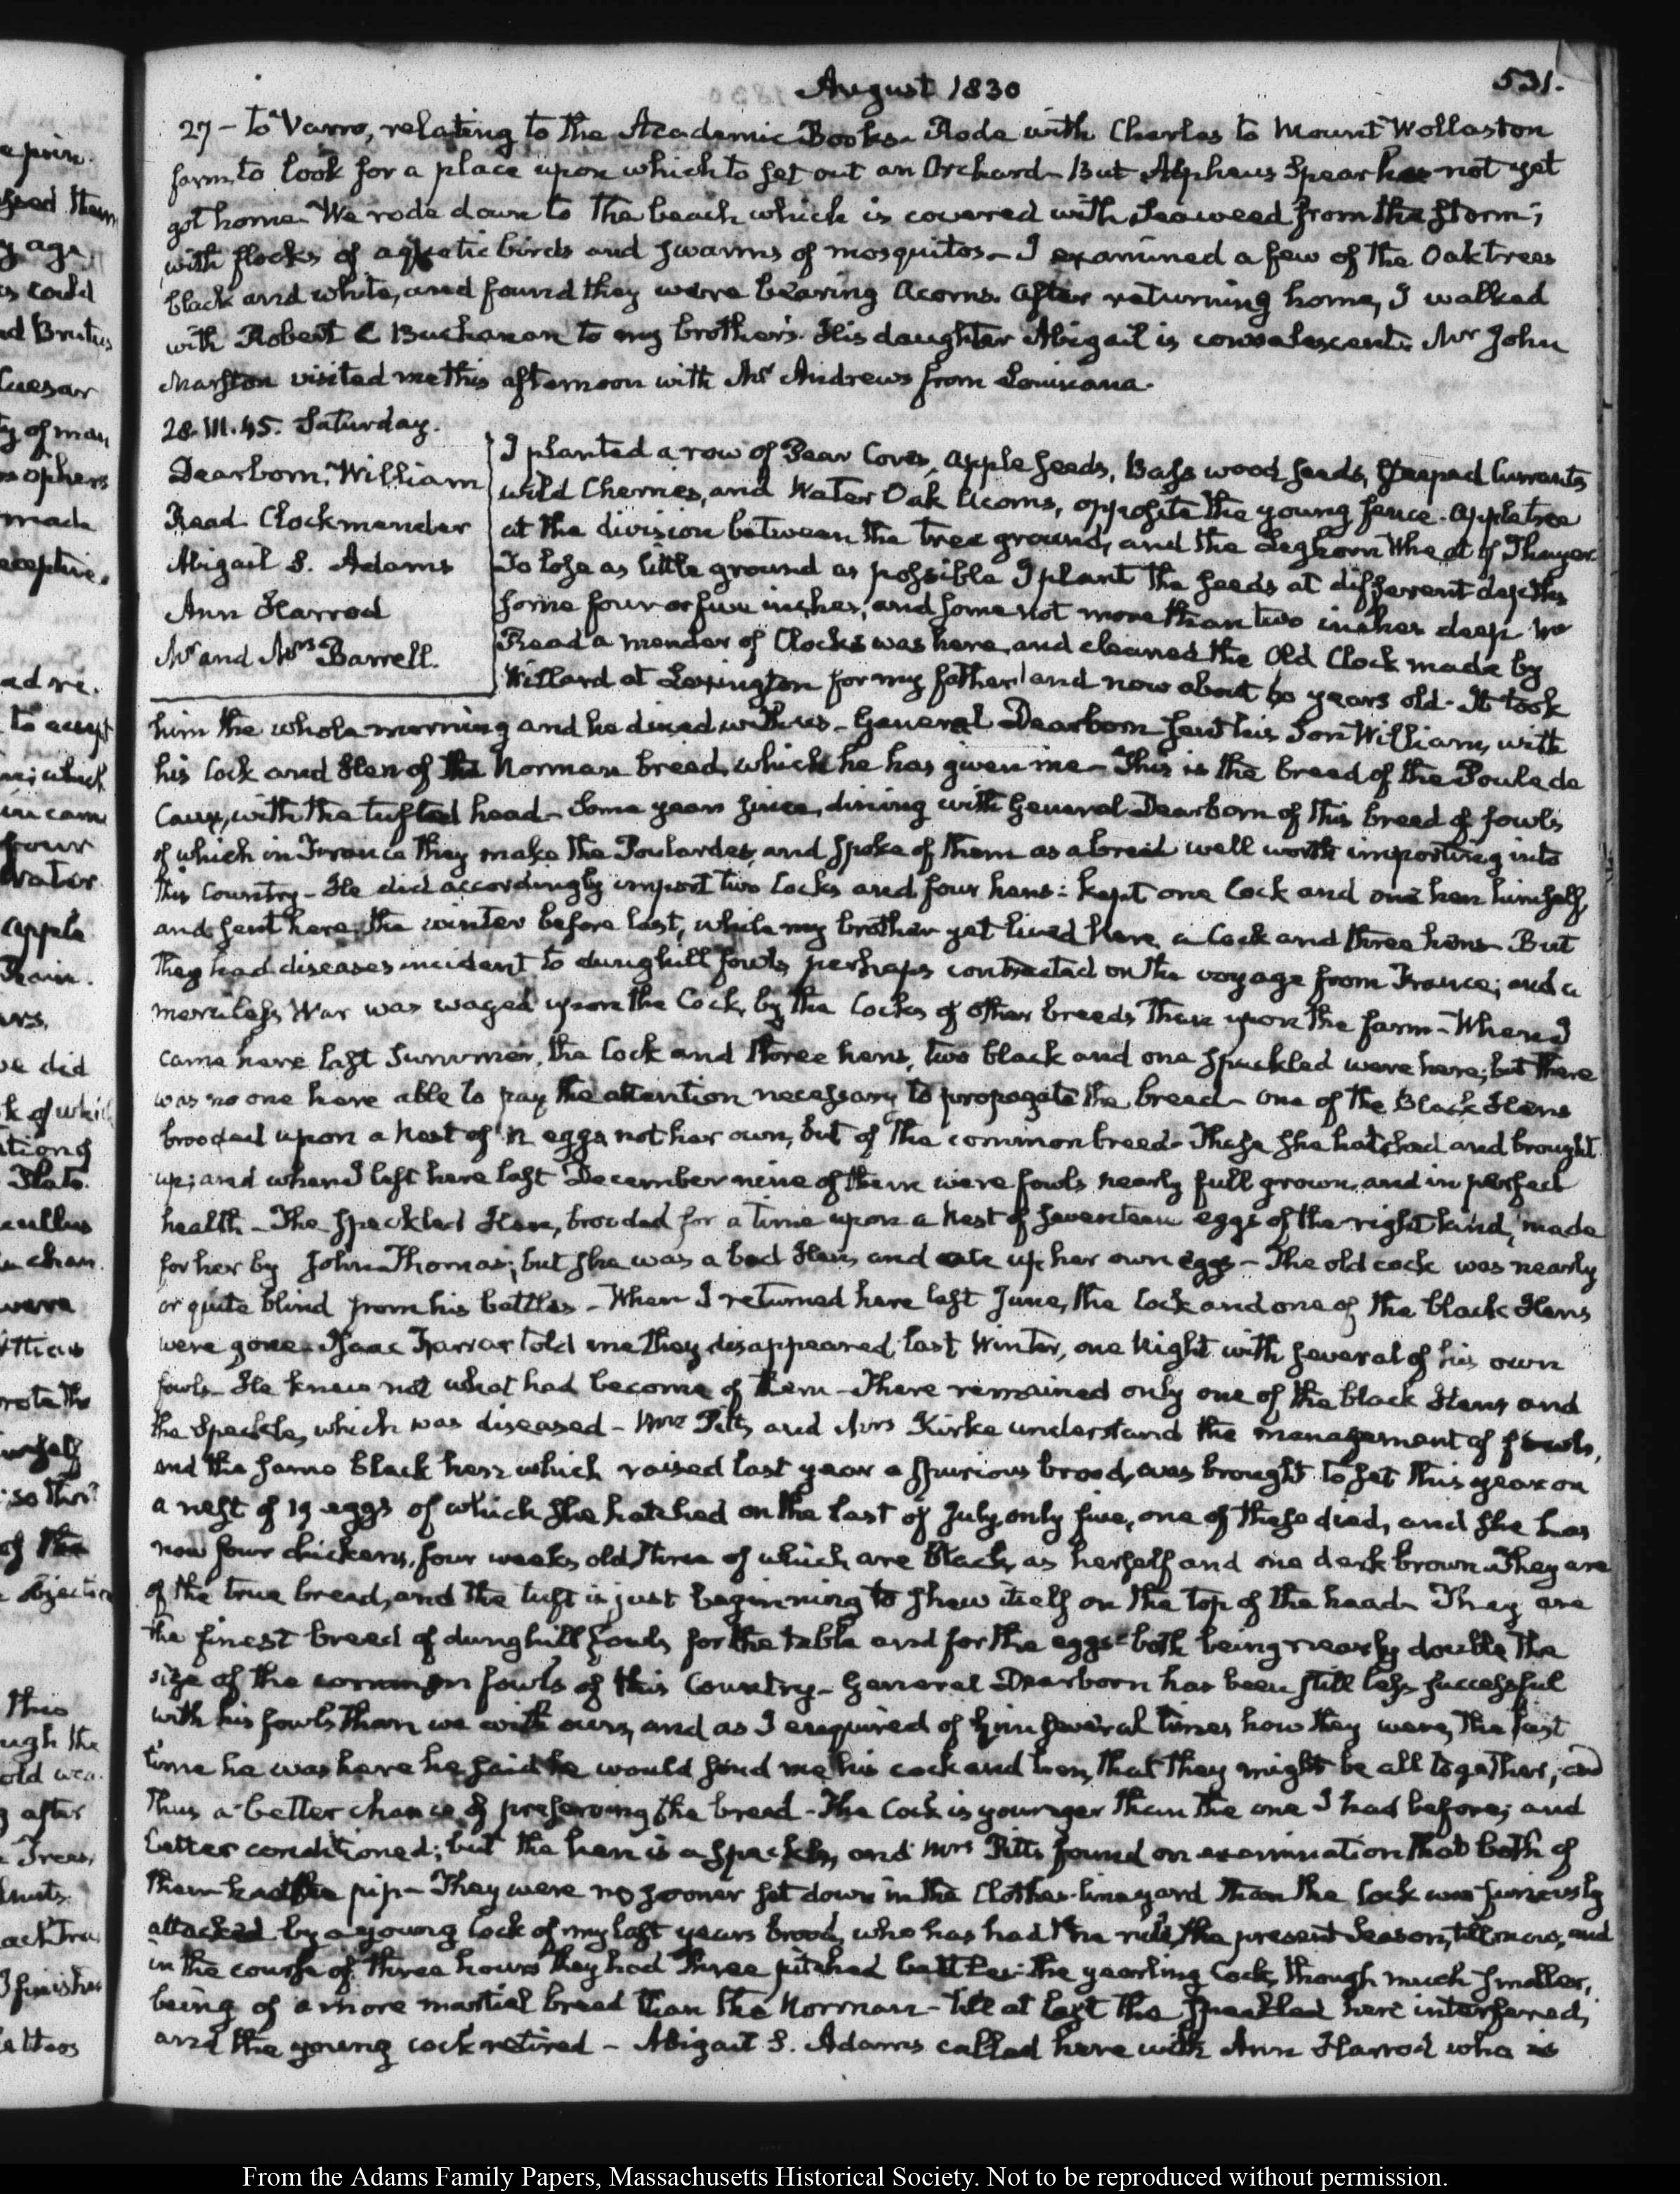 August 1830
531.
27 – to Varro, relating to the Academic Books – Rode with Charles to Mount Wollaston
farm, to look for a place upon which to set out an Orchard – But Alpheus Spear has not yet
got home – We rode down to the beach which is covered with Seaweed from the storm;
with flocks of aquatic birds and swarms of mosquitos – I examined a few of the Oak trees
black and white, and found they were bearing Acorns. After returning home, I walked
with Robert C Buchanan to my brother's. His daughter Abigail is convalescent. Mr John
Marston visited me this afternoon with Mr Andrews from Louisiana.
28. III. 45. Saturday.
Dearborn, William
Read Clockmender
Abigail S. Adams
Ann Harrod
Mr and Mrs Barrell.
I planted a row of Pear Cores, apple seeds, Bass wood seeds, steeped Currants
wild Cherries, and Water Oak Acorns, opposite the young fence. appletree
at the division between the tree ground, and the Leghorn Wheat of Thayer.
To lose as little ground as possible I plant the seeds at different depths
some four or five inches, and some not more than two inches deep. Mr
Read a mender of Clocks was here, and cleaned the Old Clock made by
Willard at Lexington for my father, and now about 60 years old. It took
him the whole morning and he dined with us – General Dearborn sent his Son William, with
his Cock and Hen of the Norman breed, which he has given me – This is the breed of the Poule de
Caux, with the tufted head – Some years since, dining with General Dearborn of this breed of fowls,
of which in France they make the Poulardes, and spoke of them as a breed well worth importing into
this Country – He did accordingly import two Cocks and four hens: kept one Cock and one hen himself,
and sent here, the winter before last, while my brother yet lived here, a Cock and three hens – But
they had diseases incident to dunghill fowls perhaps contracted on the voyage from France; and a
merciless War was waged upon the Cock, by the Cocks of other breeds then upon the farm – When I
came here last Summer, the Cock and three hens, two black and one speckled were here; but there
was no one here able to pay the attention necessary to propagate the breed – One of the Black Hens
brooded upon a Nest of 12 eggs not her own, but of the common breed – These she hatched and brought
up; and when I left here last December nine of them were fowls nearly full grown, and in perfect
health – The speckled Hen, brooded for a time upon a Nest of seventeen eggs of the right kind, made
for her by John Thomas; but she was a bad Hen and ate up her own eggs – The old cock was nearly
or quite blind from his battles – When I returned here last June, the Cock and one of the black Hens
were gone – Isaac Farrar told me they disappeared last Winter, one Night with several of his own
fowls – He knew not what had become of them – There remained only one of the black Hens and
the Speckle, which was diseased – Mrs Pitts, and Mrs Kirke understand the management of fowls,
and the same black hen which raised last year a spurious brood, was brought to set this year on
a nest of 19 eggs of which she hatched on the last of July only five, one of these died, and she has
now four chickens, four weeks old, three of which are black, as herself and one dark brown – They are
of the true breed, and the tuft is just beginning to shew itself on the top of the head – They are
the finest breed of dunghill fowls for the table and for the eggs – both being nearly double the
size of the common fowls of this Country – General Dearborn has been still less successful
with his fowls than we with ours, and as I enquired of him several times how they were, the last
time he was here he said he would send me his cock and hen, that they might be all together, and
thus a better chance of preserving the breed – The Cock is younger than the one I had before; and
better conditioned; but the hen is a speckle, and Mrs Pitts found on examination that both of
them had the pip – They were no sooner set down in the Clothes-line yard than the Cock was furiously
attacked by a young Cock of my last years brood, who has had the rule, the present Season, till now, and
in the course of three hours they had three pitched battles: the yearling Cock, though much smaller,
being of a more martial breed than the Norman – till at last the speckled hen interfered,
and the young cock retired – Abigail S. Adams called here with Ann Harrod who is
From the Adams Family Papers, Massachusetts Historical Society. Not to be reproduced without permission.